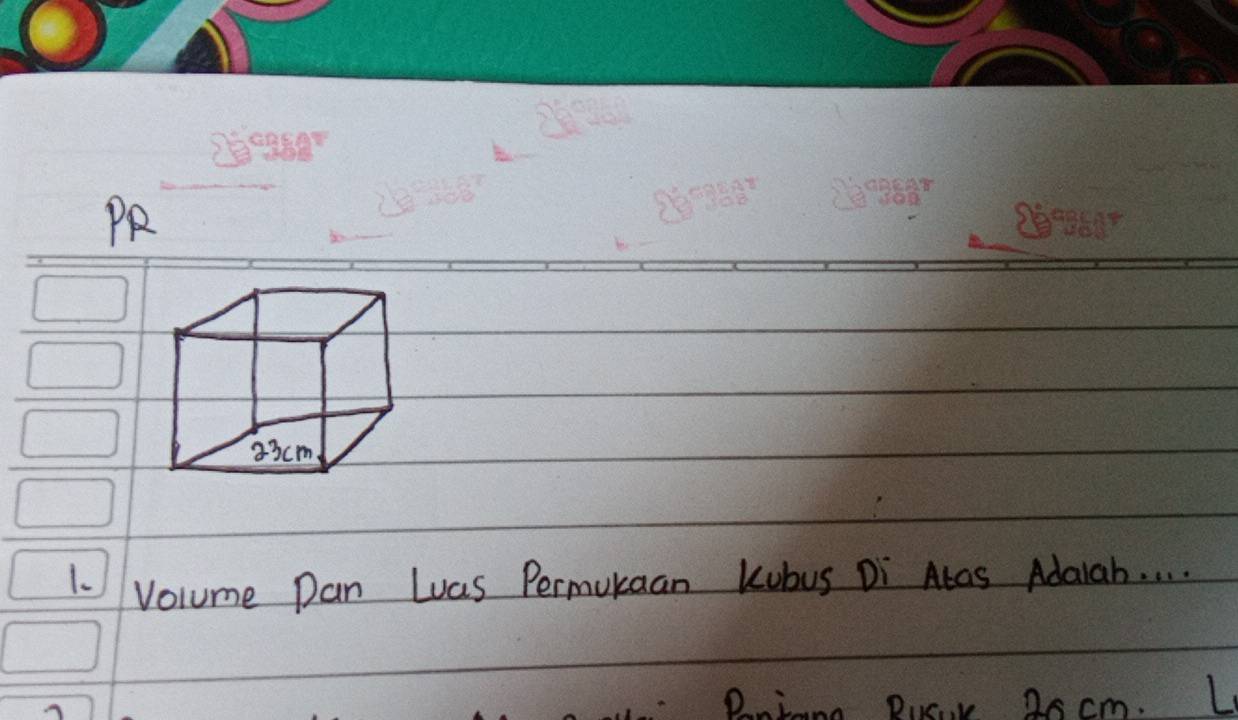 GREAT JOB
GREAT JOB
GREAT JOB
GREAT JOB
GREAT JOB
GREAT JOB
PR
23cm
1. Volume Dan Luas Permukaan Kubus Di Atas Adalah....
Panjang Rusuk cm.